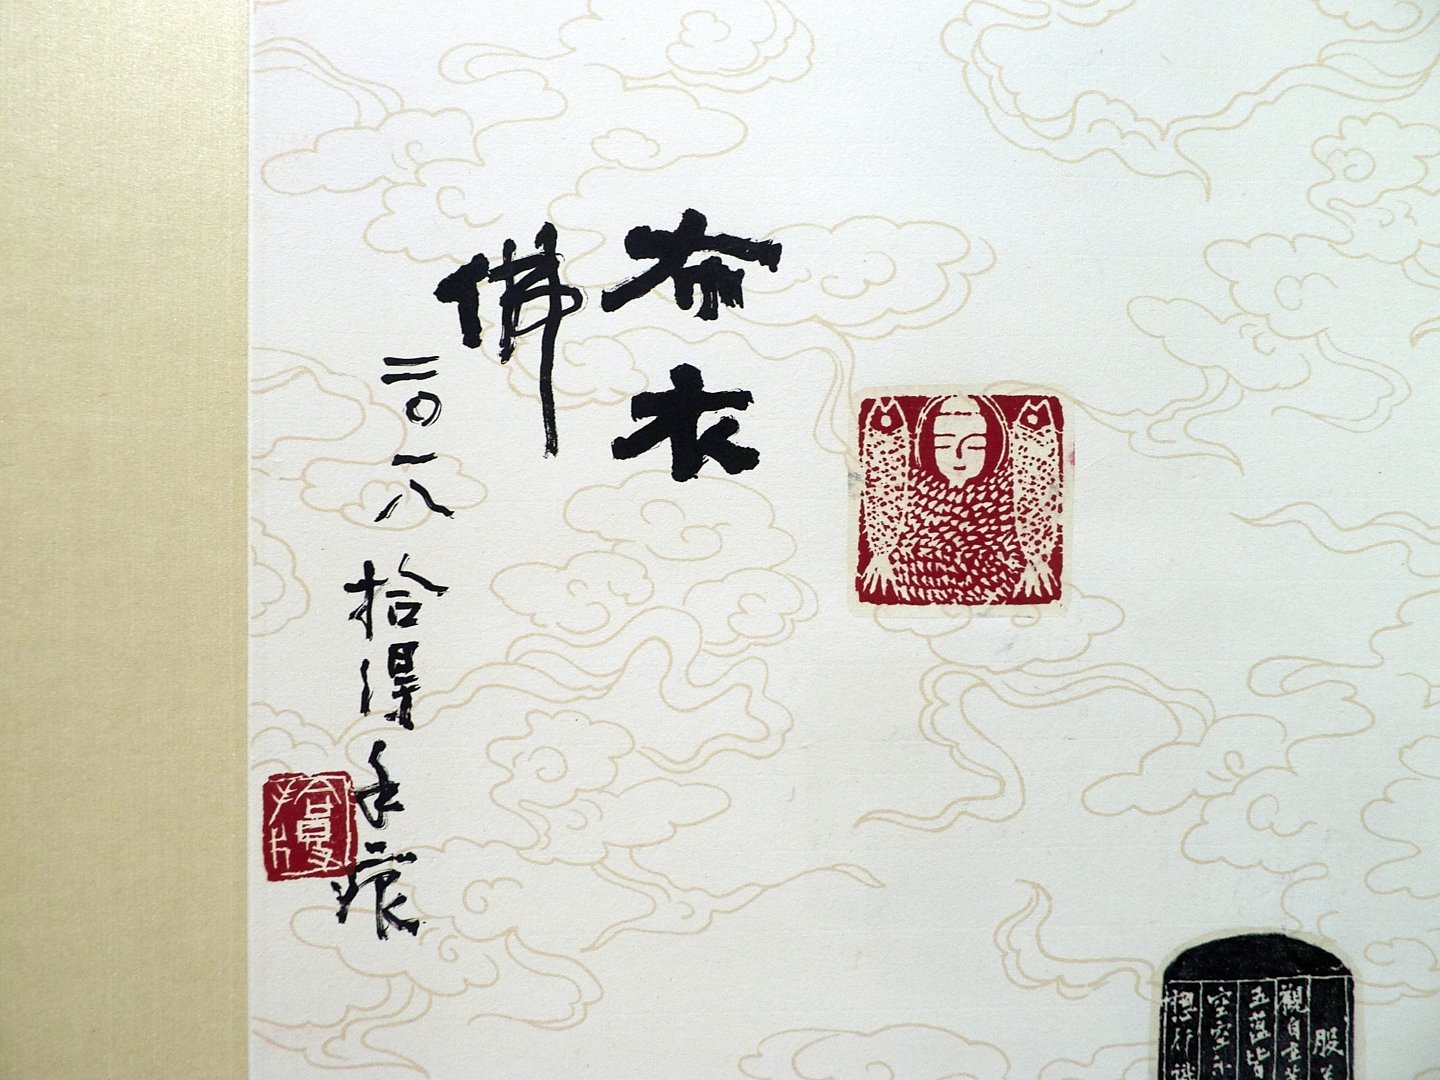 布衣
佛
二〇一八 拾得手痕
般
觀自在菩
五蘊皆
空空不
想行識